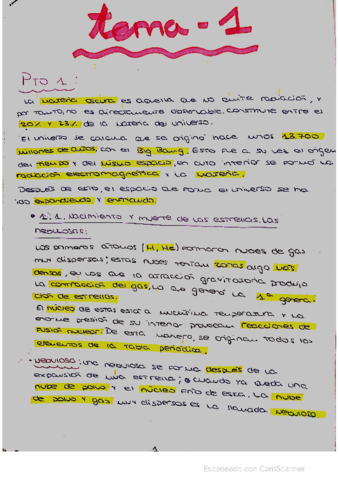 tema - 1
Pto 1:
La materia oscura es aquella que no emite radiación, y
por tanto, no es directamente observable. Constituye entre el
20% y 23% de la materia del universo.
El universo se calcula que se originó hace unos 13.700
millones de años, con el Big Bang. Esto fue a su vez el origen
del tiempo y del mismo espacio, en cuyo interior se formó la
radiación electromagnética y la materia.
Después de esto, el espacio que forma el universo se ha
ido expandiendo y enfriando.
• 1.1. Nacimiento y muerte de las estrellas. Las
nebulosas:
Los primeros átomos (H, He) formaron nubes de gas
muy dispersas; estas nubes tenían zonas algo más
densas, en las que la atracción gravitatoria produjo
la contracción del gas, lo que generó la 1ª genera-
ción de estrellas.
El núcleo de estas está a muchísima temperatura y la
enorme presión de su interior provocan reacciones de
fusión nuclear. De esta manera, se originan todos los
elementos de la tabla periódica.
• Nebulosa: una nebulosa se forma después de la
expansión de una estrella; cuando ya queda una
nube de polvo y el núcleo frío de esta. La nube
de polvo y gas muy dispersos es la llamada nebulosa
1
Escaneado con CamScanner